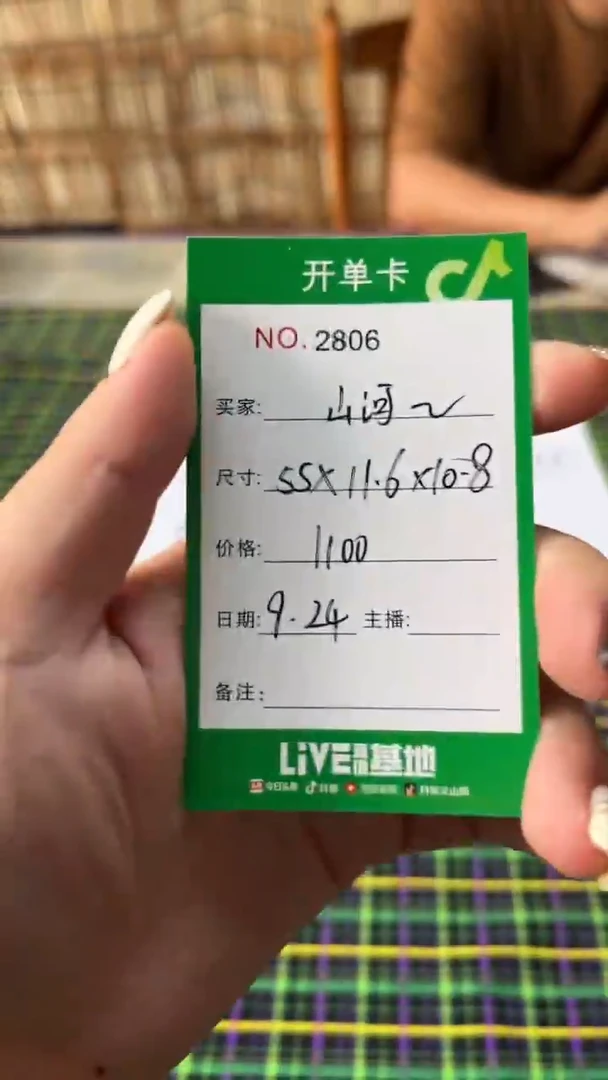 开单卡
NO. 2806
买家: 山河~
尺寸: 55X11.6X10-8
价格: 1100
日期: 9.24 主播:
备注:
LiVE 基地
今日头条 抖音